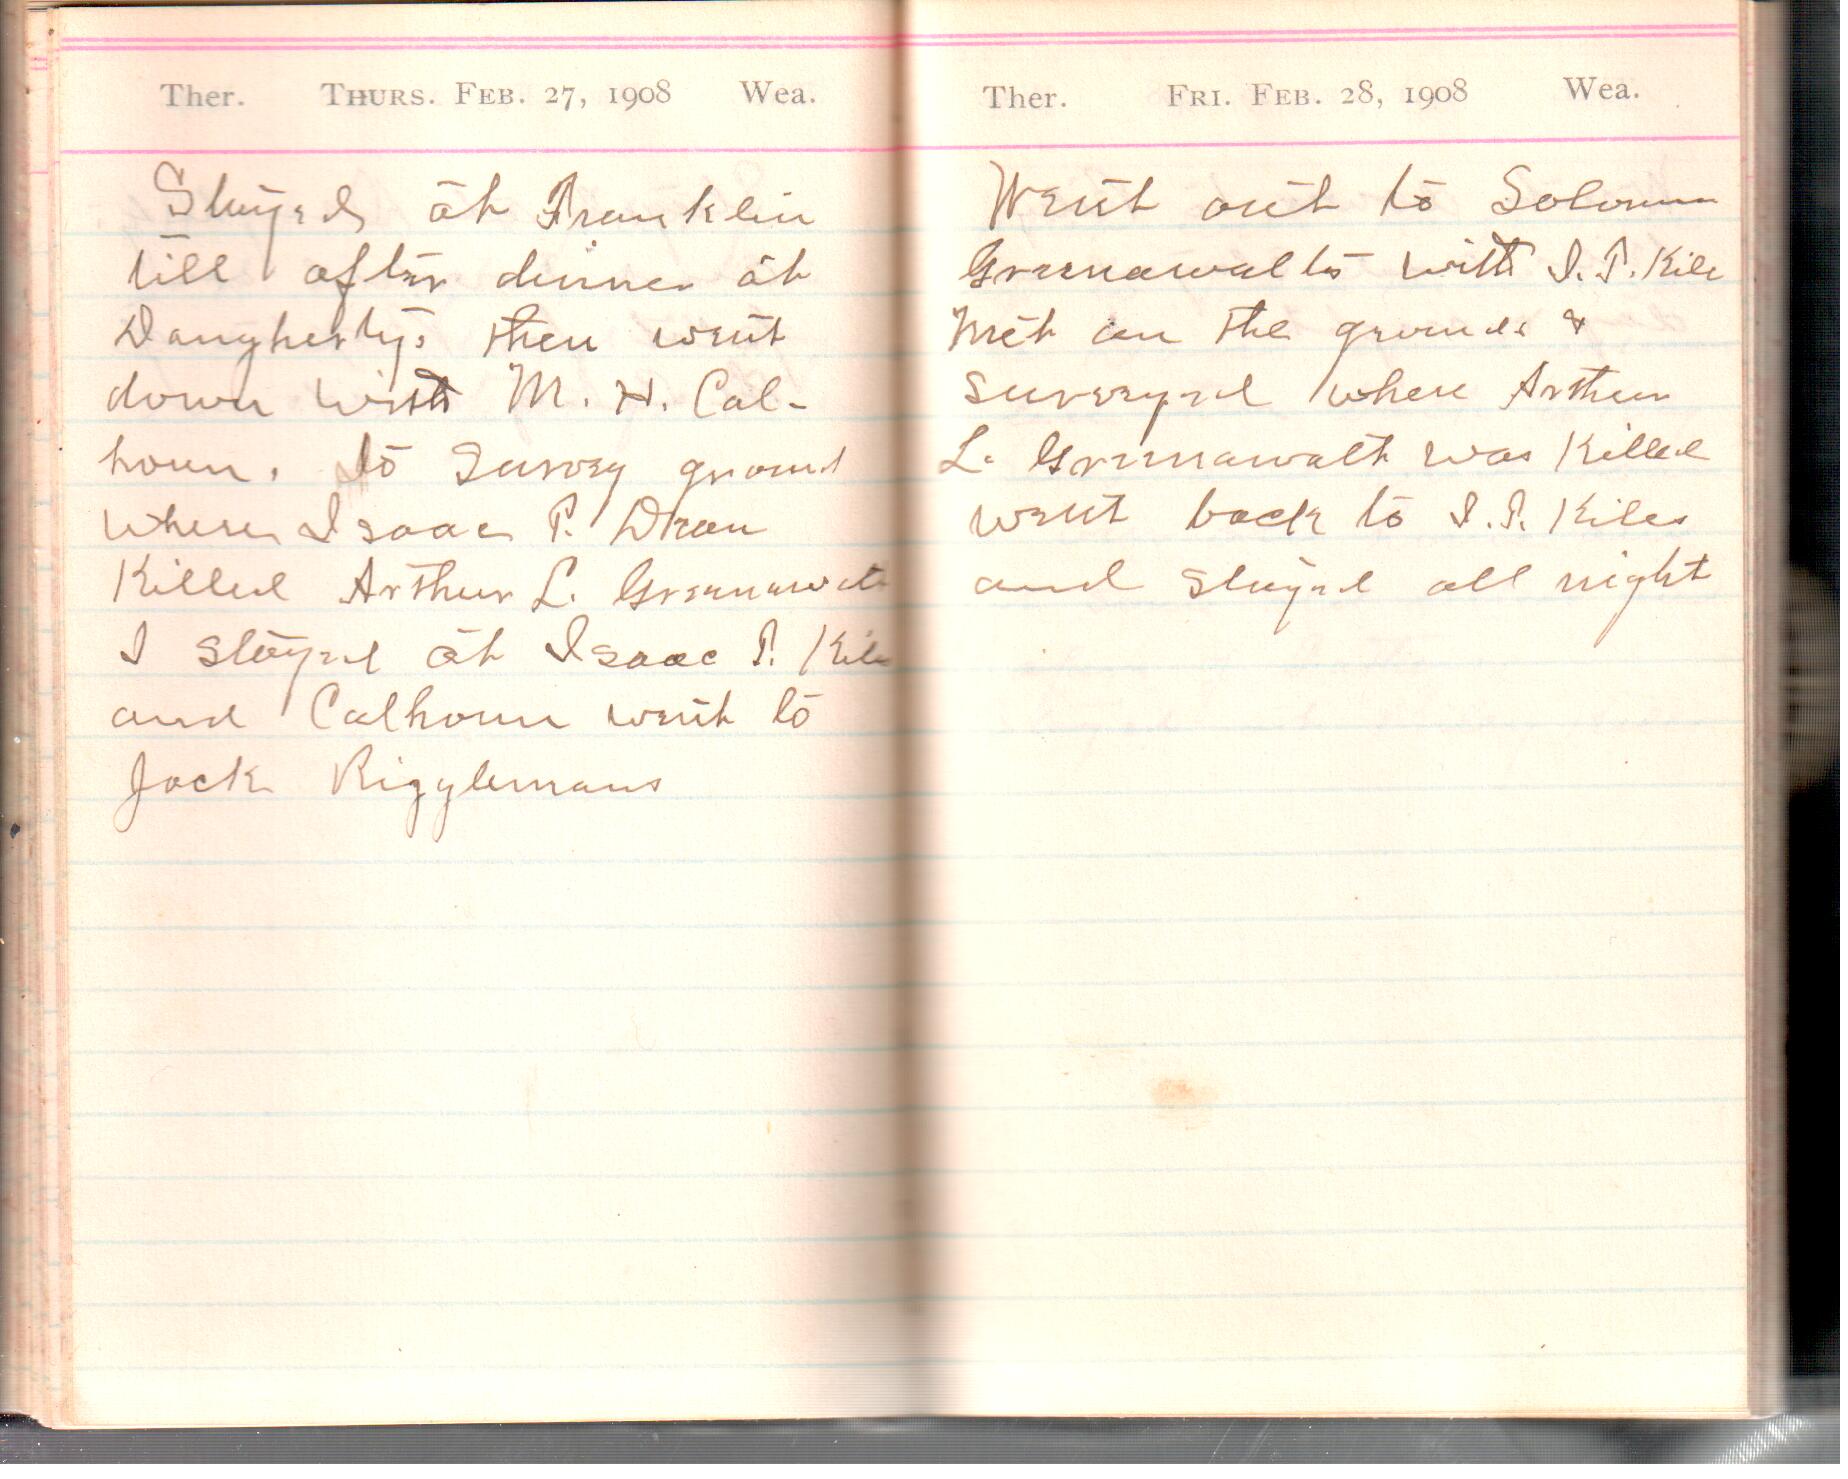 Ther. THURS. FEB. 27, 1908 Wea.
Stayed at Franklin
till after dinner at
Daugherty's then went
down with M. H. Cal-
houn. to Survey ground
where Isaac P.
Killed Arthur L. Greenawalt
I stayed at Isaac P. Kile
and Calhoun went to
Jack Rigglemans
Ther. FRI. FEB. 28, 1908 Wea.
Went out to Solomon
Greenawalts with I. P. Kile
Met on the grounds &
surveyed where Arthur
L. Greenawalt was Killed
went back to I. P. Kiles
and stayed all night